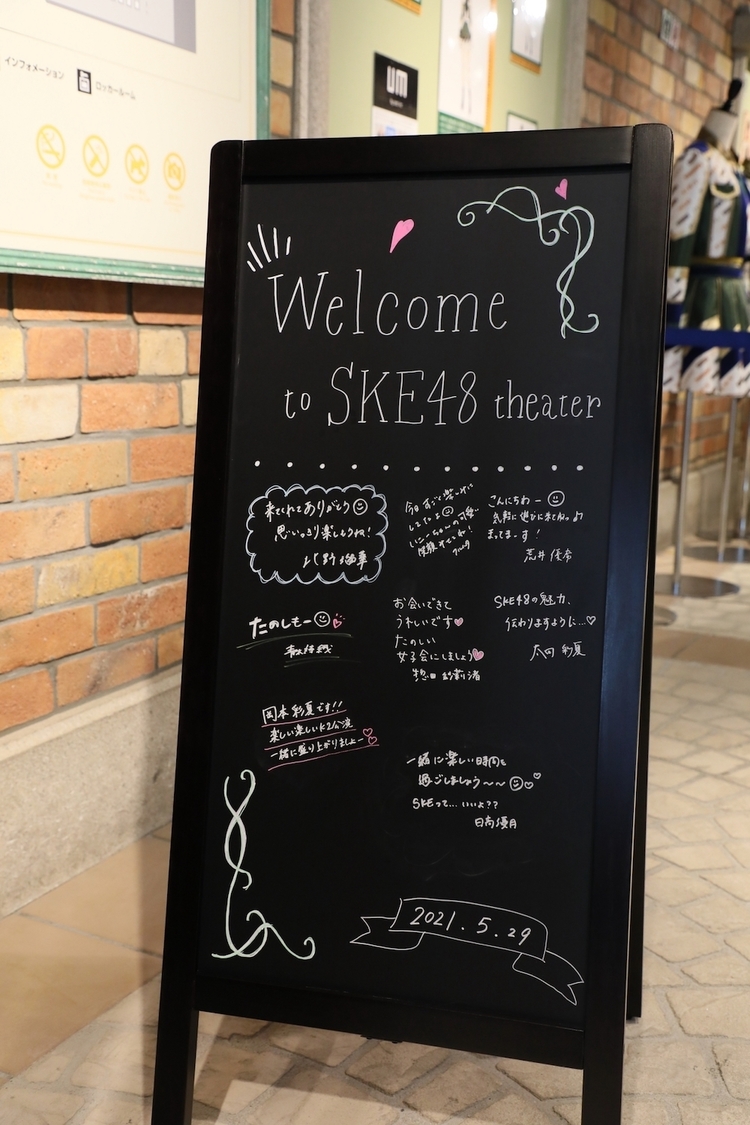 インフォメーション
ロッカールーム
UM
Welcome
to SKE48 theater
来てくれてありがとう
思いっきり楽しもうね!
こんにちわー
気軽に遊びに来てねっ♪
まってまーす!
荒井優希
たのしもー
お会いできて
うれしいです♡
たのしい
女子会にしましょう♡
SKE48の魅力、
伝わりますように...♡
太田彩夏
岡本彩夏です!!
楽しい楽しいK2公演
一緒に盛り上がりましょー♡
一緒に楽しい時間を
過ごしましょう〜〜
SKEって...いいよ??
日高優月
2021.5.29